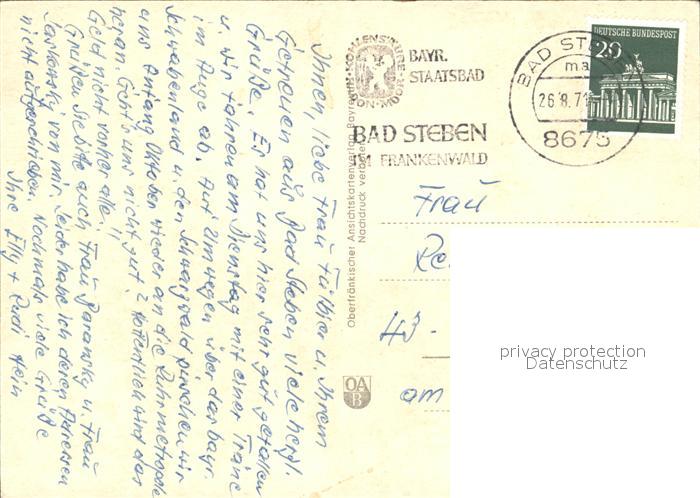 Ihnen, liebe Frau Fülbier u. Ihrem
Getreuen aus Bad Steben viele herzl.
Grüße. Es hat uns hier sehr gut gefallen
u. wir fahren am Dienstag mit einer Träne
im Auge ab. Auf Umwegen über das bayr.
Schwabenland u. den Schwarzwald pirschen wir
uns Anfang Oktober wieder an die Ruhrmetropole
heran. Geht's uns nicht gut? Hoffentlich wird das
Geld nicht vorher alle!!
Grüßen Sie bitte auch Frau Baransky u. Frau
von mir. Leider habe ich deren Adressen
nicht aufgeschrieben. Nochmals viele Grüße
Ihre Elly + Rudi Hein
KOHLENSÄURE
MOOR
BAYR.
STAATSBAD
BAD STEBEN
IM FRANKENWALD
BAD STEBEN
26.8.71
8675
DEUTSCHE BUNDESPOST
20
Oberfränkischer Ansichtskartenverlag Bayreuth
Nachdruck verboten
OA
B
Frau
43 -
am
privacy protection
Datenschutz